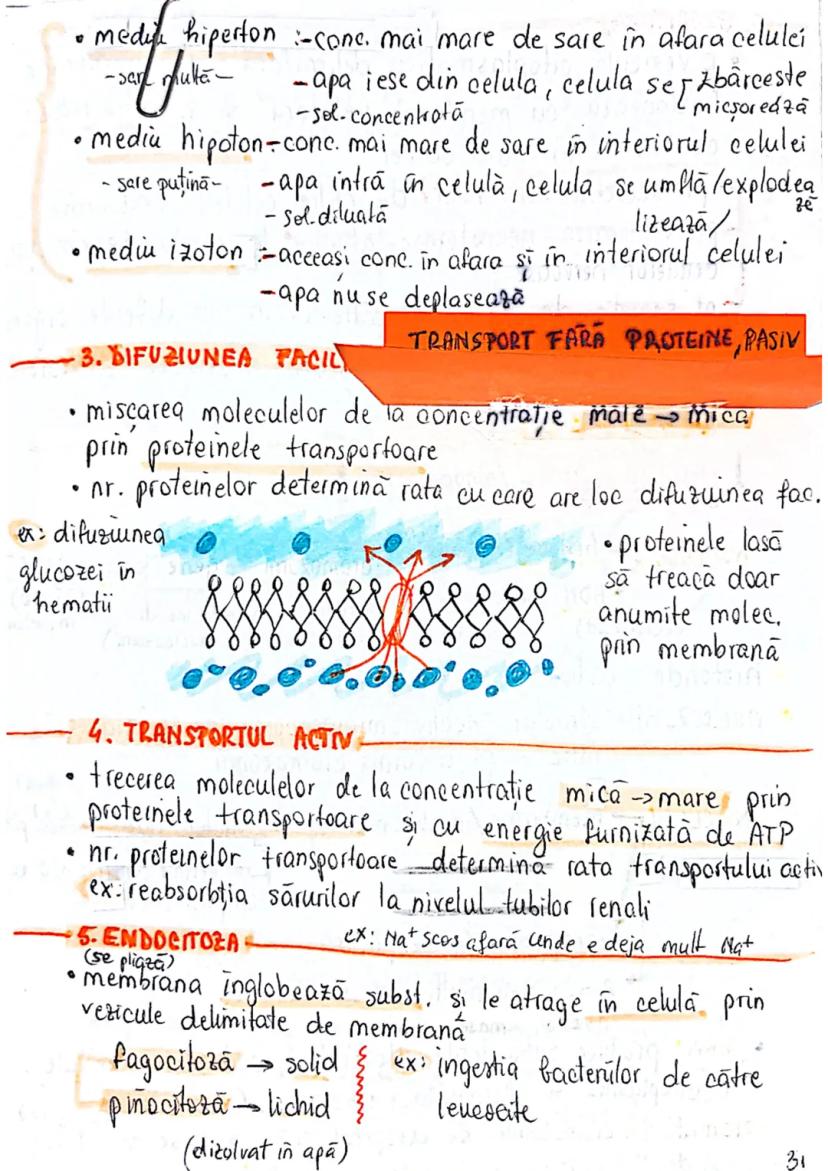 • mediu hiperton :-conc. mai mare de sare în afara celulei
-sare multă- -apa iese din celula, celula se zbârcește
micșorează
-sol. concentrată
• mediu hipoton:-conc. mai mare de sare în interiorul celulei
- sare puțină- -apa intră în celulă, celula se umflă/explodea
ză
- sol. diluată lizează/
• mediu izoton :-aceeasi conc. în afara și în interiorul celulei
-apa nu se deplasează
TRANSPORT FĂRĂ PROTEINE, PASIV
3. DIFUZIUNEA FACIL
• mișcarea moleculelor de la concentrație mare → mica
prin proteinele transportoare
• nr. proteinelor determină rata cu care are loc difuzuinea fac.
ex: difuziunea
glucozei în
hematii
• proteinele lasă
să treacă doar
anumite molec.
prin membrană
4. TRANSPORTUL ACTIV
• trecerea moleculelor de la concentrație mică → mare prin
proteinele transportoare și cu energie furnizată de ATP
• nr. proteinelor transportoare determină rata transportului activ
ex: reabsorbția sărurilor la nivelul tubilor renali
ex: Na⁺ scos afară unde e deja mult Na⁺
5. ENDOCITOZA
(se pliază)
• membrana înglobează subst. și le atrage în celulă prin
vezicule delimitate de membrană
fagocitoză → solid
pinocitoză → lichid
(dizolvat în apă)
ex: ingestia bacteriilor de către
leucocite
31